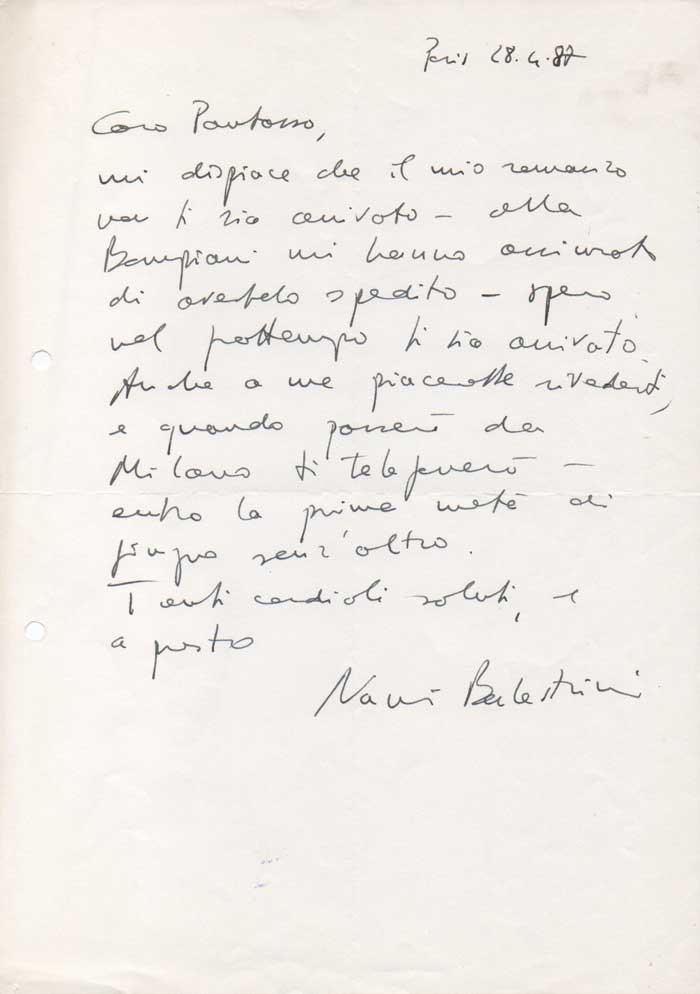 Paris 28.4.87
Caro Pantosso,
mi dispiace che il mio romanzo
non ti sia arrivato – alla
Bompiani mi hanno assicurato
di avertelo spedito – spero
nel frattempo ti sia arrivato.
Anche a me piacerebbe rivederti,
e quando passerò da
Milano ti telefonerò –
entro la prima metà di
giugno senz'altro.
Tanti cordiali saluti, e
a presto
Nanni Balestrini